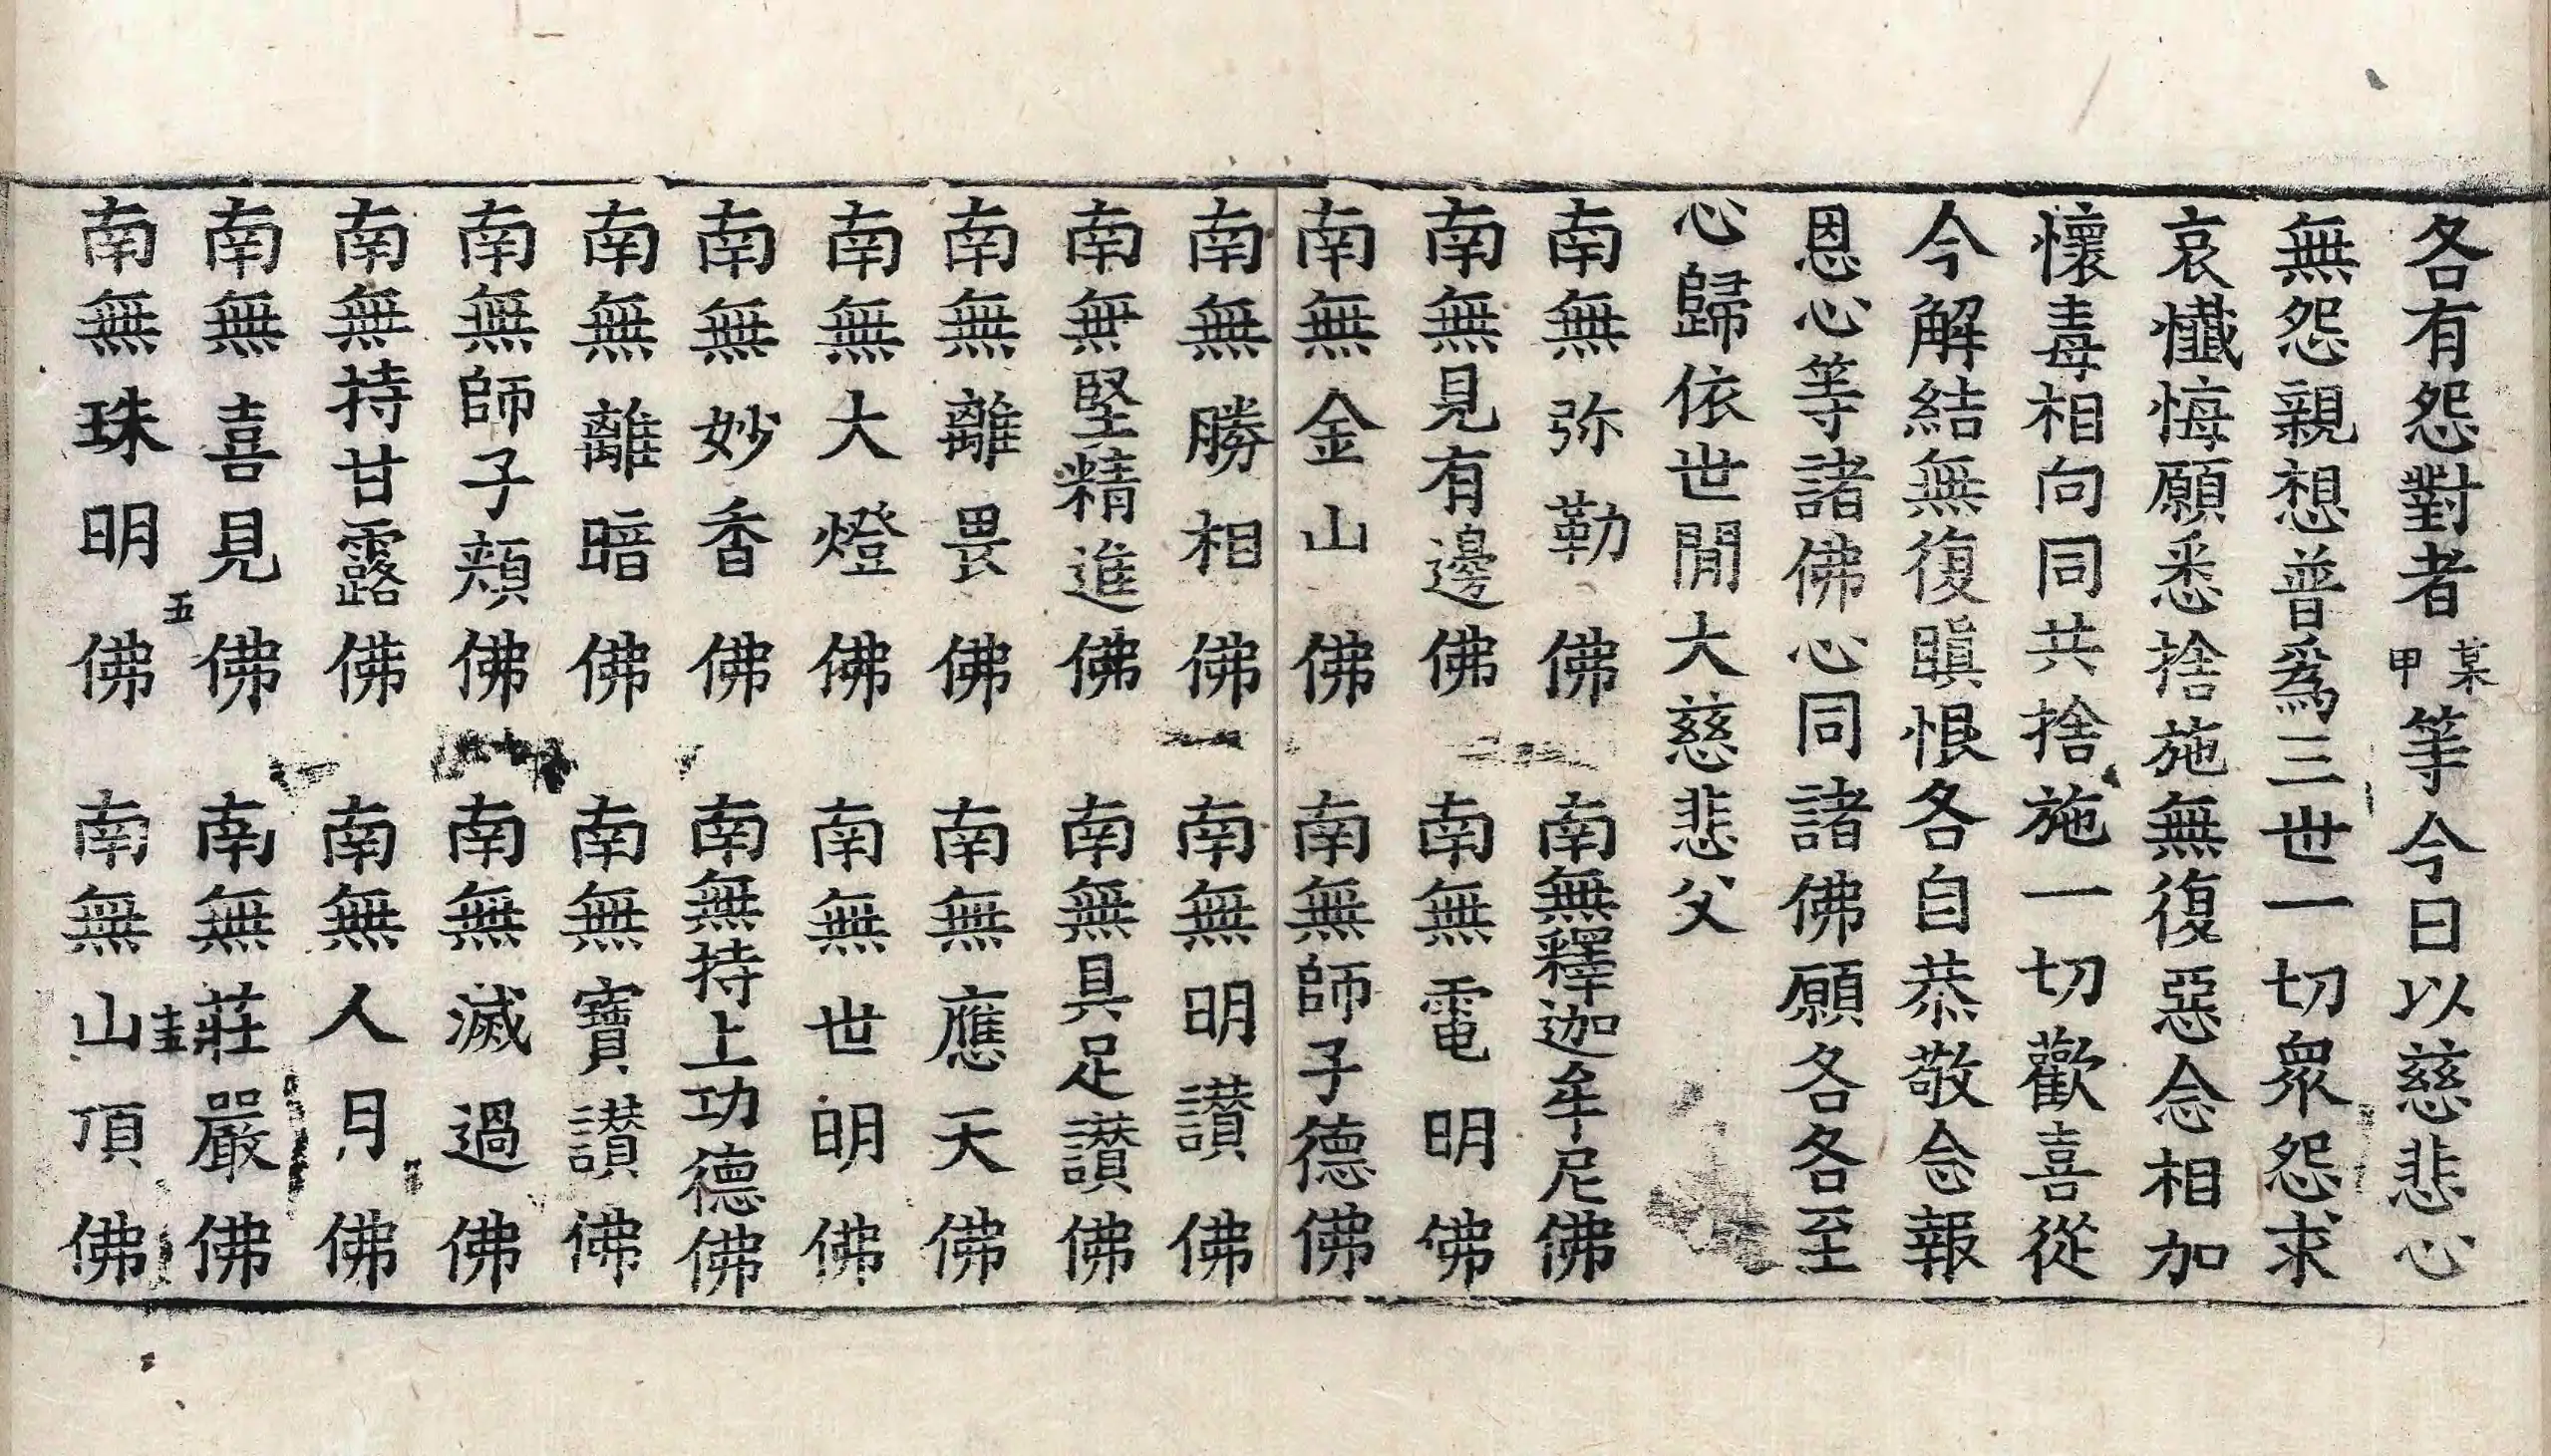 各有怨對者某甲等今日以慈悲心
無怨親想普爲三世一切衆怨求
哀懺悔願悉捨施無復惡念相加
懷毒相向同共捨施一切歡喜從
今解結無復瞋恨各自恭敬念報
恩心等諸佛心同諸佛願各各至
心歸依世閒大慈悲父
南無弥勒佛　南無釋迦牟尼佛
南無見有邊佛　南無電明佛
南無金山佛　南無師子德佛
南無勝相佛　南無明讃佛
南無堅精進佛　南無具足讃佛
南無離畏佛　南無應天佛
南無大燈佛　南無世明佛
南無妙香佛　南無持上功德佛
南無離暗佛　南無寶讃佛
南無師子頰佛　南無滅過佛
南無持甘露佛　南無人月佛
南無喜見佛　南無莊嚴佛
五　圭
南無珠明佛　南無山頂佛